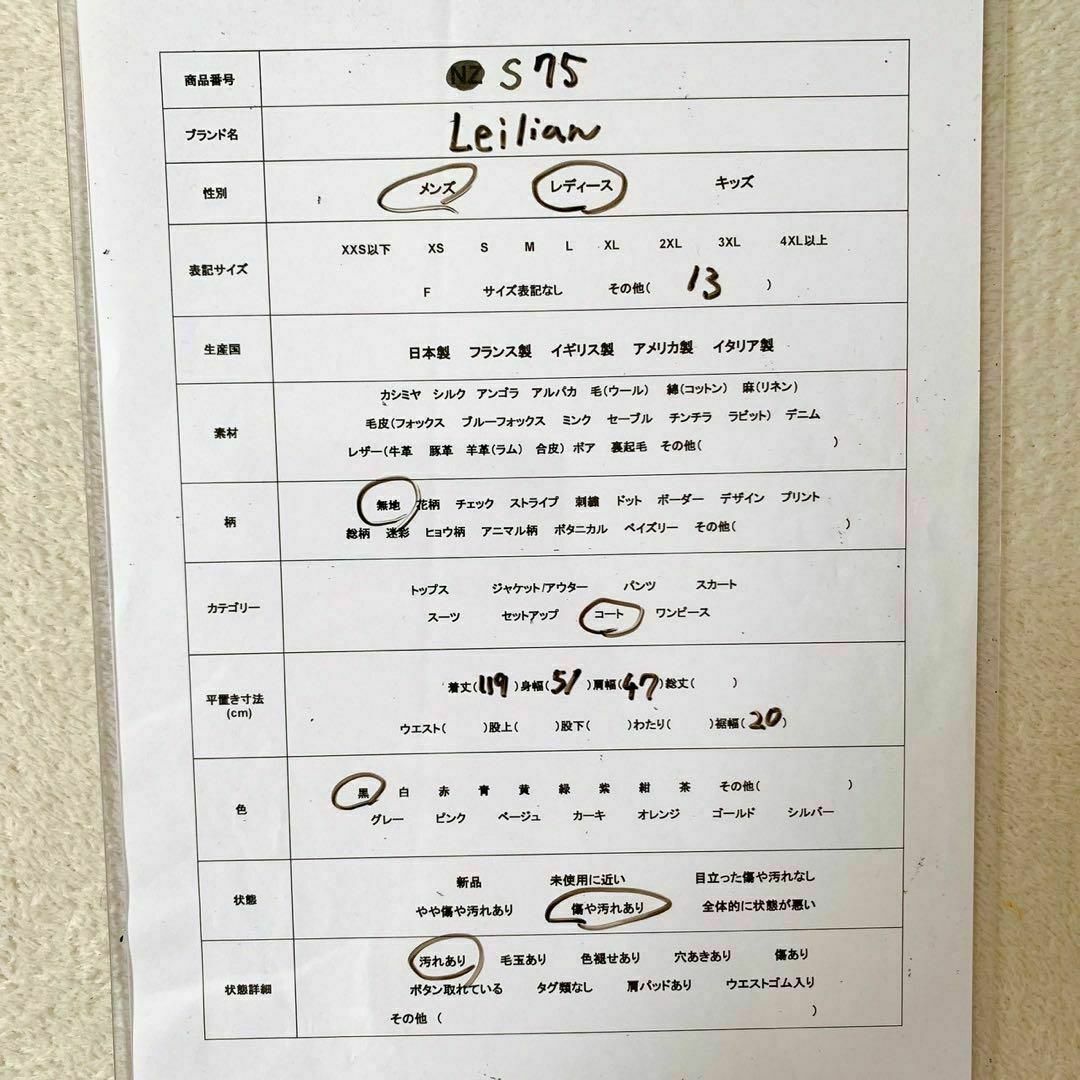 商品番号 NZ S75
ブランド名 Leilian
性別 メンズ レディース キッズ
表記サイズ
XXS以下 XS S M L XL 2XL 3XL 4XL以上
F サイズ表記なし その他( 13 )
生産国 日本製 フランス製 イギリス製 アメリカ製 イタリア製
素材
カシミヤ シルク アンゴラ アルパカ 毛(ウール) 綿(コットン) 麻(リネン)
毛皮(フォックス ブルーフォックス ミンク セーブル チンチラ ラビット) デニム
レザー(牛革 豚革 羊革(ラム) 合皮) ボア 裏起毛 その他( )
柄
無地 花柄 チェック ストライプ 刺繍 ドット ボーダー デザイン プリント
総柄 迷彩 ヒョウ柄 アニマル柄 ボタニカル ペイズリー その他( )
カテゴリー
トップス ジャケット/アウター パンツ スカート
スーツ セットアップ コート ワンピース
平置き寸法
(cm)
着丈(119)身幅(51)肩幅(47)総丈( )
ウエスト( )股上( )股下( )わたり( )裾幅(20)
色
黒 白 赤 青 黄 緑 紫 紺 茶 その他( )
グレー ピンク ベージュ カーキ オレンジ ゴールド シルバー
状態
新品 未使用に近い 目立った傷や汚れなし
やや傷や汚れあり 傷や汚れあり 全体的に状態が悪い
状態詳細
汚れあり 毛玉あり 色褪せあり 穴あきあり 傷あり
ボタン取れている タグ類なし 肩パッドあり ウエストゴム入り
その他 ( )